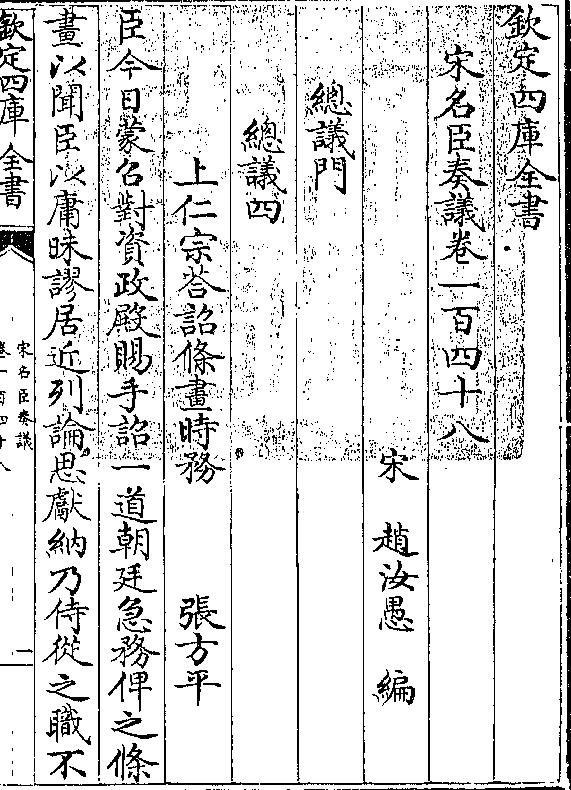 欽定四庫全書
宋名臣奏議卷一百四十八
宋 趙汝愚 編
總議門
總議四
上仁宗荅詔條畫時務 張方平
臣今日蒙召對資政殿賜手詔一道朝廷急務俾之條
畫以聞臣以庸昧謬居近列論思獻納乃侍從之職不
欽定四庫全書
宋名臣奏議
卷一百四十八
一